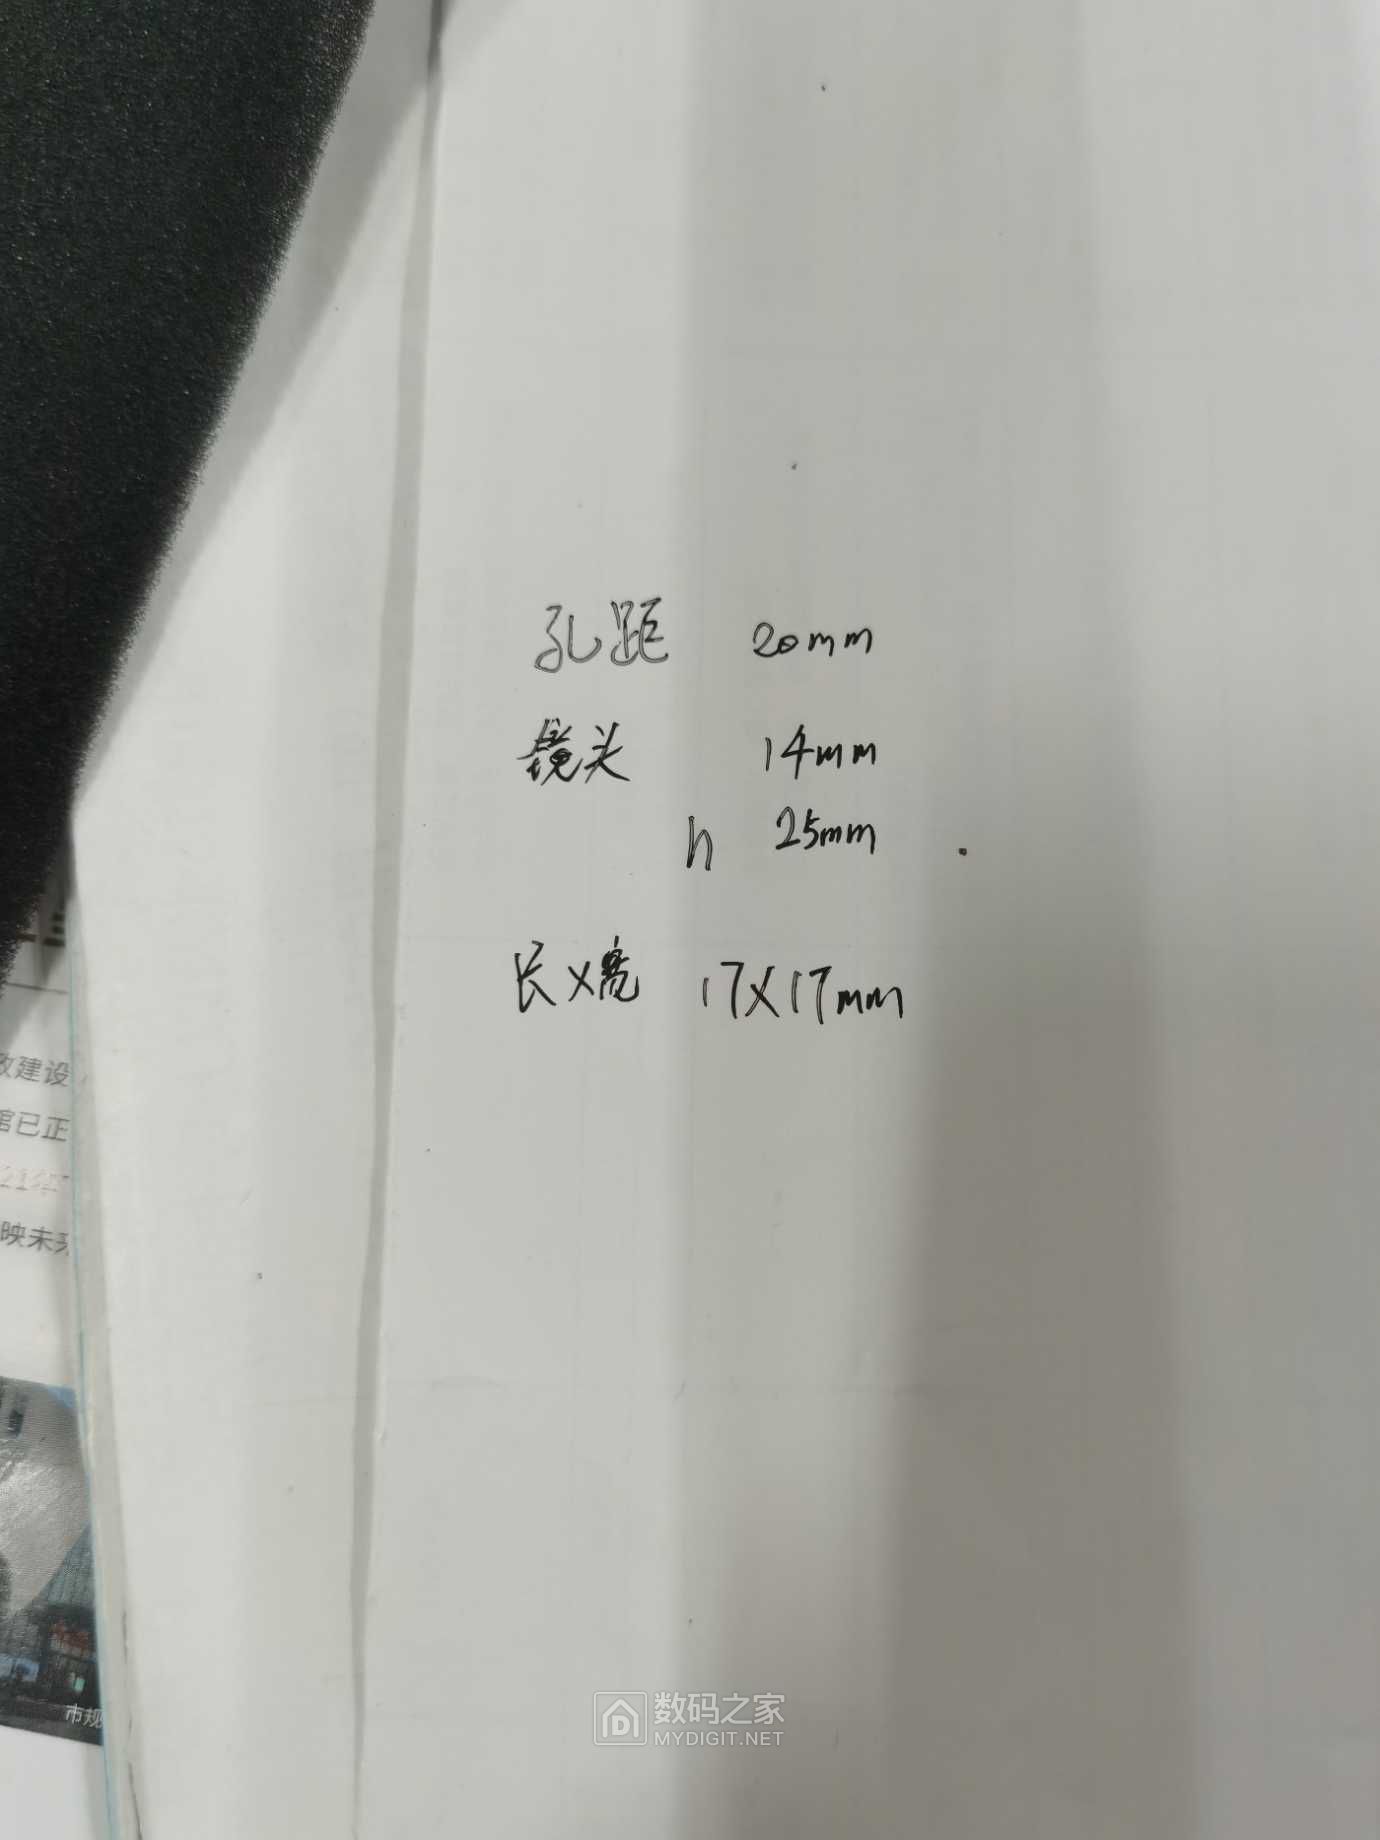 孔距 20mm
镜头 14mm
h 25mm
长X高 17X17mm
改建设
馆已正
映未来
市规
数码之家
MYDIGIT.NET